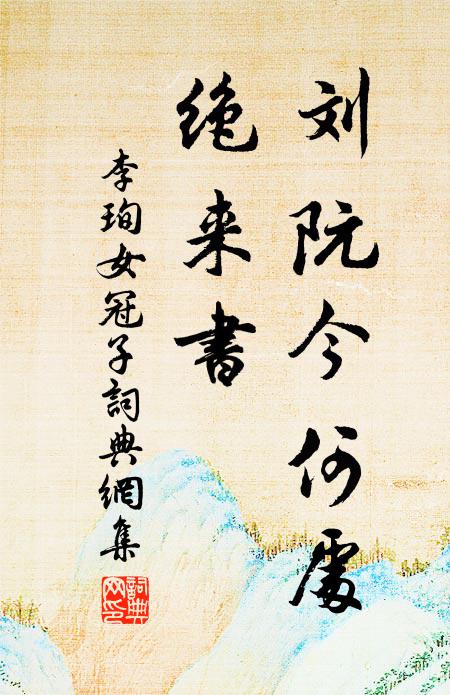 刘阮今何處
绝来書
李珣女冠子詞典網集
詞典网印